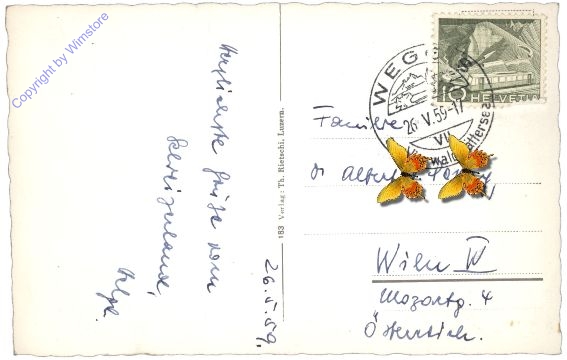 Copyright by Wimstore
Herzlichste Grüße vom
Schweizerlande,
Helga.
26.V.59.
183 Verlag: Th. Rietschi, Luzern.
WEGGIS
26.V.59-17
VII
Vierwaldstättersee
10
HELVETIA
Familie
Wien IV
Mozartg. 4
Österreich.